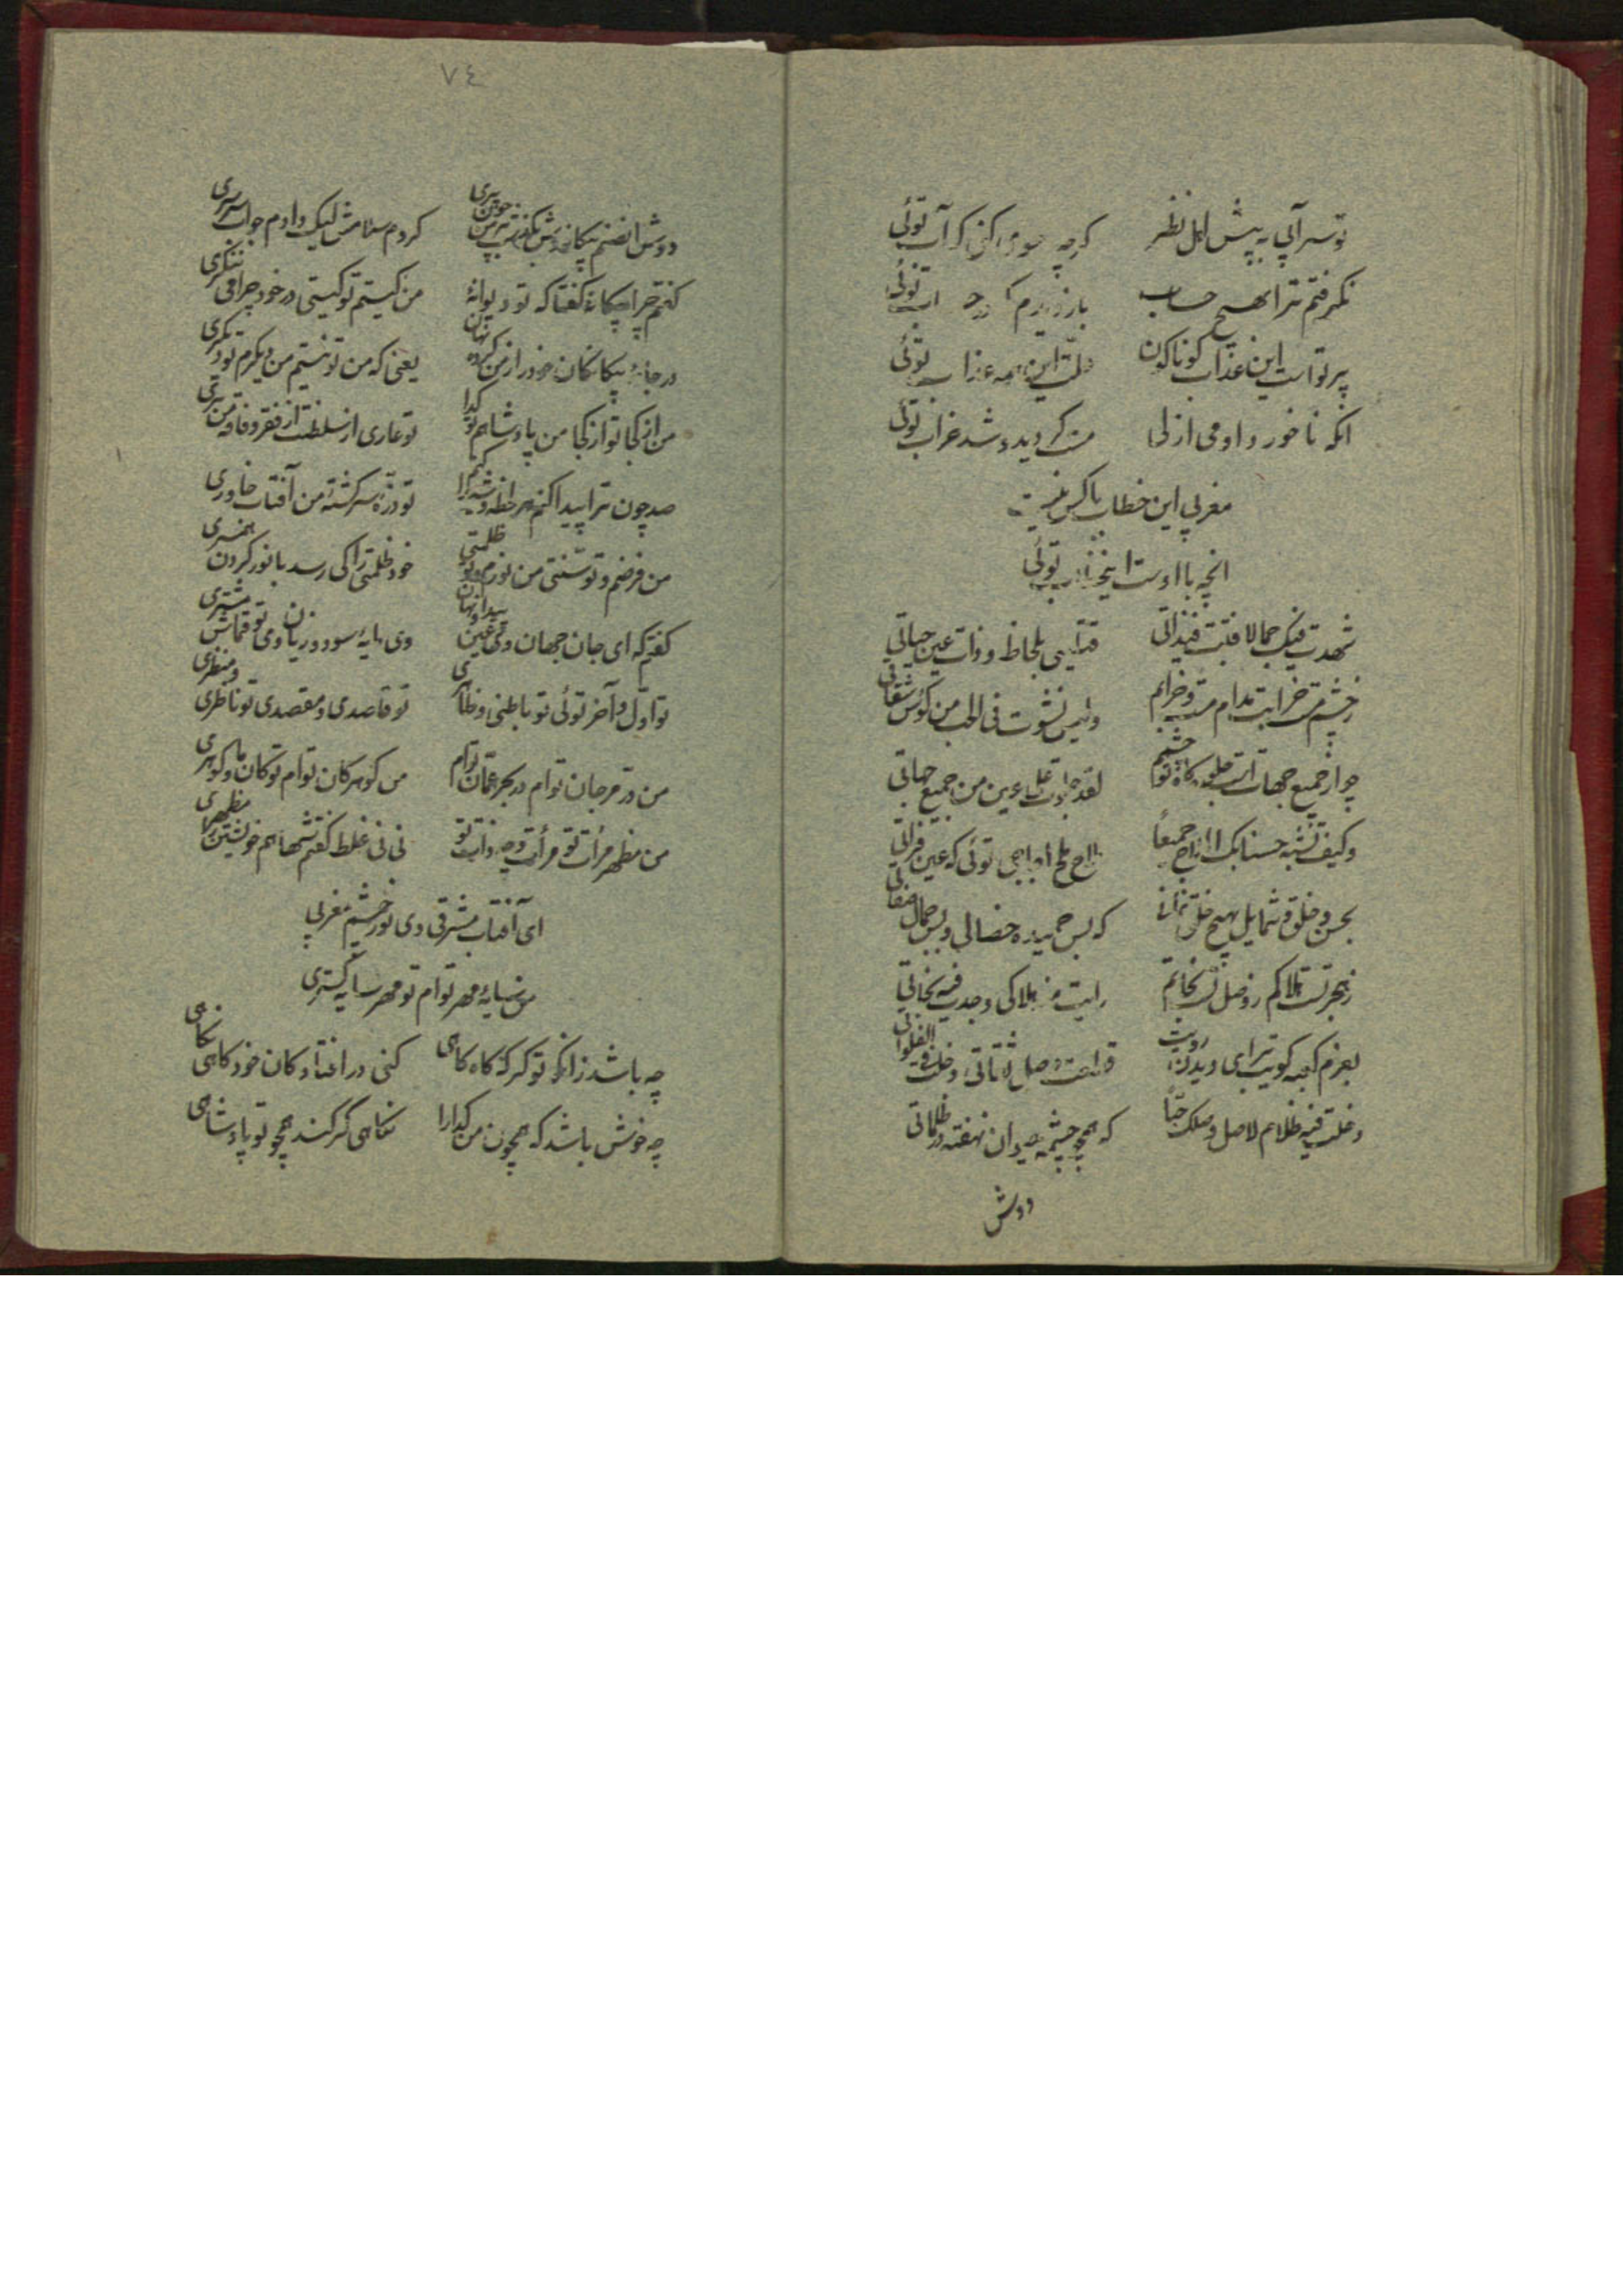 تو سرآبی به پیش اهل نظر گرچه آب توئی
نگرفتم ترا بهیچ حساب باز دیدم توئی
پرتو است این عذاب کوناکون این همه عذاب توئی
انکه ناخورد او می ازلی مست کردید و شد خراب توئی
مغربی این خطاب با کس نیست
انچه با اوست توئی
شهدت فیک جمالا فنیت فیه بذاتی قتلتنی بلحاظ و ذات عین حیاتی
ز چشم مست خرابت مدام مست و خرابم و لیس نشوت فی الحب من کؤس
چو از جمیع جهاتست جلوه کاه تو چشمم لقد جلوت علی عین من جمیع جهاتی
و کیف تشبه حسنا بک الملاح جمیعا ملاح توئی که عین فراتی
بحسن و خلق و شمایل بهیچ خلق که بس حمیده خصالی و بس جمال صفاتی
ز هجر تست هلاکم ز وصل تست نجاتم رایت هلاکی وجدت فیه نجاتی
بعزم کعبه کویت برای دیدن رویت قطعت وصل
دخلت فیه ظلام لاصل وصلک حبا که همچو چشمه حیوان نهفته در ظلماتی
دوش
٧٤
دوش انصنم بیکانه وش بکذشت بر من چون پری کردم سلامش لیک داد م جواب سرسری
کفتم چرا بیکانهٔ کفتا که تو دیوانهٔ من کیستم تو کیستی در خود چرا می ننکری
در جامهٔ بیکانکان خود را ز من کرده نهان یعنی که من تو نیستم من دیکرم تو دیکری
من از کجا تو از کجا من پادشاهم تو کدا تو عاری از سلطنت من از فقر و فاقه بری
صد چون ترا پیدا کنم هر لحظه و شیدا کنم تو ذرّهٔ سرکشتهٔ من آفتاب خاوری
من فرضم و تو سنّتی من نورم و تو ظلمتی خود ظلمتی را کی رسد با نور کردن همسری
کفتم که ای جان جهان وی عین پیدا و نهان وی مایهٔ سود و زیان وی تو قماش و مشتری
تو اوّل و آخر توئی تو باطنی و ظاهری تو قاصدی و مقصدی تو ناظری و منظری
من در مرجان توام در بحر عمّان توام من کوهر کان توام تو کان ما و کوهری
من مظهر مرأت تو مرأت وجه و ذات تو نی نی غلط کفتم شها هم خویشتن را مظهری
ای آفتاب مشرقی وی نور چشم مغربی
من سایهٔ مهر توام تو مهر سایه کستری
چه باشد زانکه تو کر که کاه کاهی کنی در افتادکان خود نکاهی
چه خوش باشد که همچون من کدا را نکاهی کر کند همچو تو پادشاهی